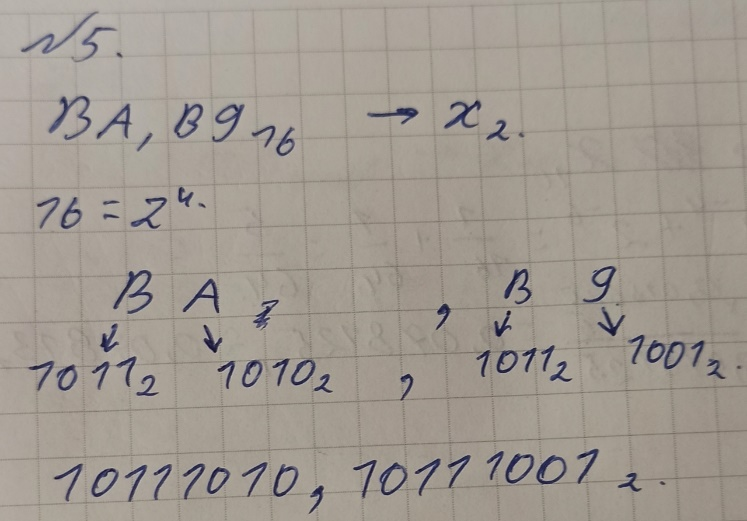 №5.
BA, B9₁₆ → x₂.
16 = 2⁴.
B A , B 9
↓ ↘ ↓ ↘
1011₂ 1010₂ , 1011₂ 1001₂.
10111010, 10111001₂.